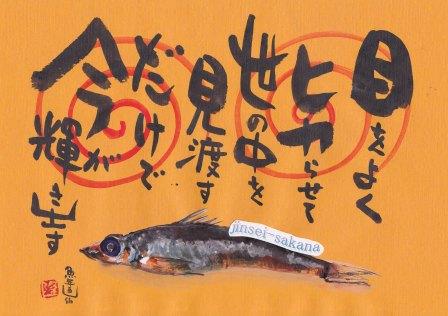 目をよく
ヒカらせて
世の中を
見渡す
だけで
今が
輝き出す
jinsei-sakana